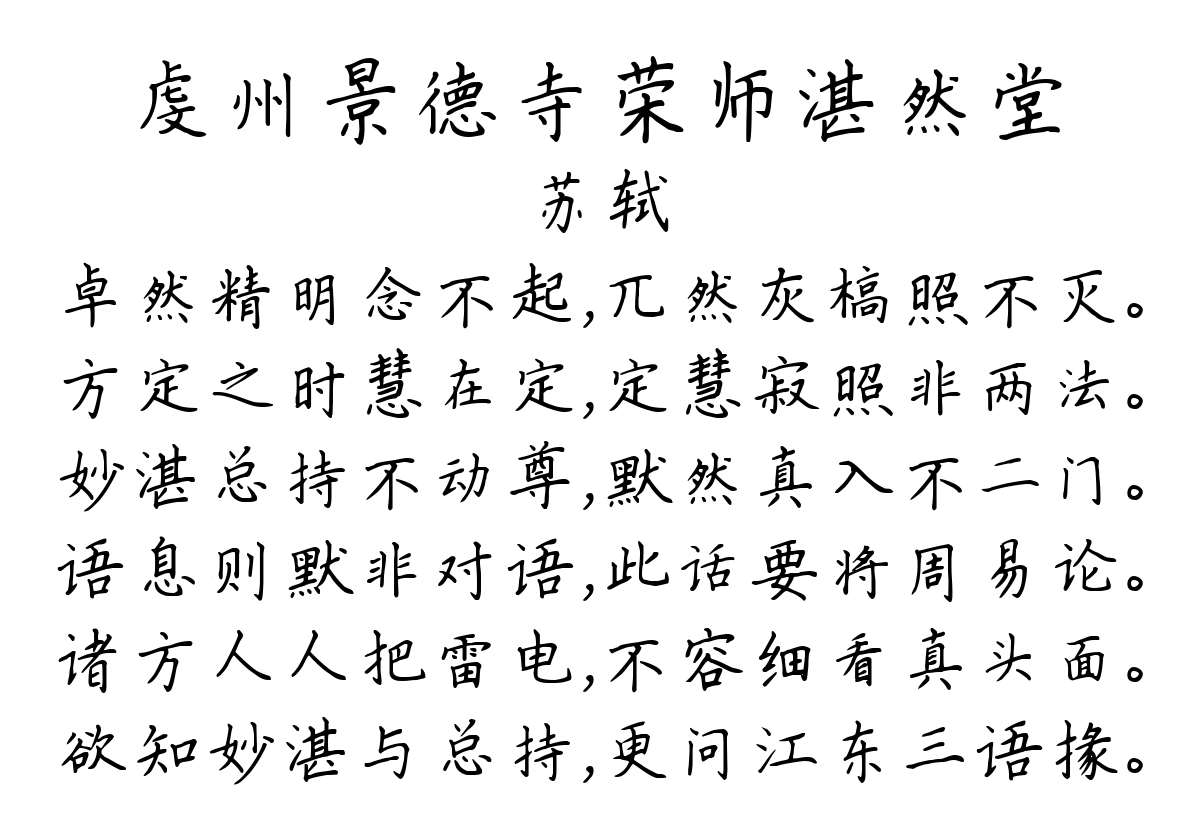 虔州景德寺荣师湛然堂
苏轼
卓然精明念不起,兀然灰槁照不灭。
方定之时慧在定,定慧寂照非两法。
妙湛总持不动尊,默然真入不二门。
语息则默非对语,此话要将周易论。
诸方人人把雷电,不容细看真头面。
欲知妙湛与总持,更问江东三语掾。